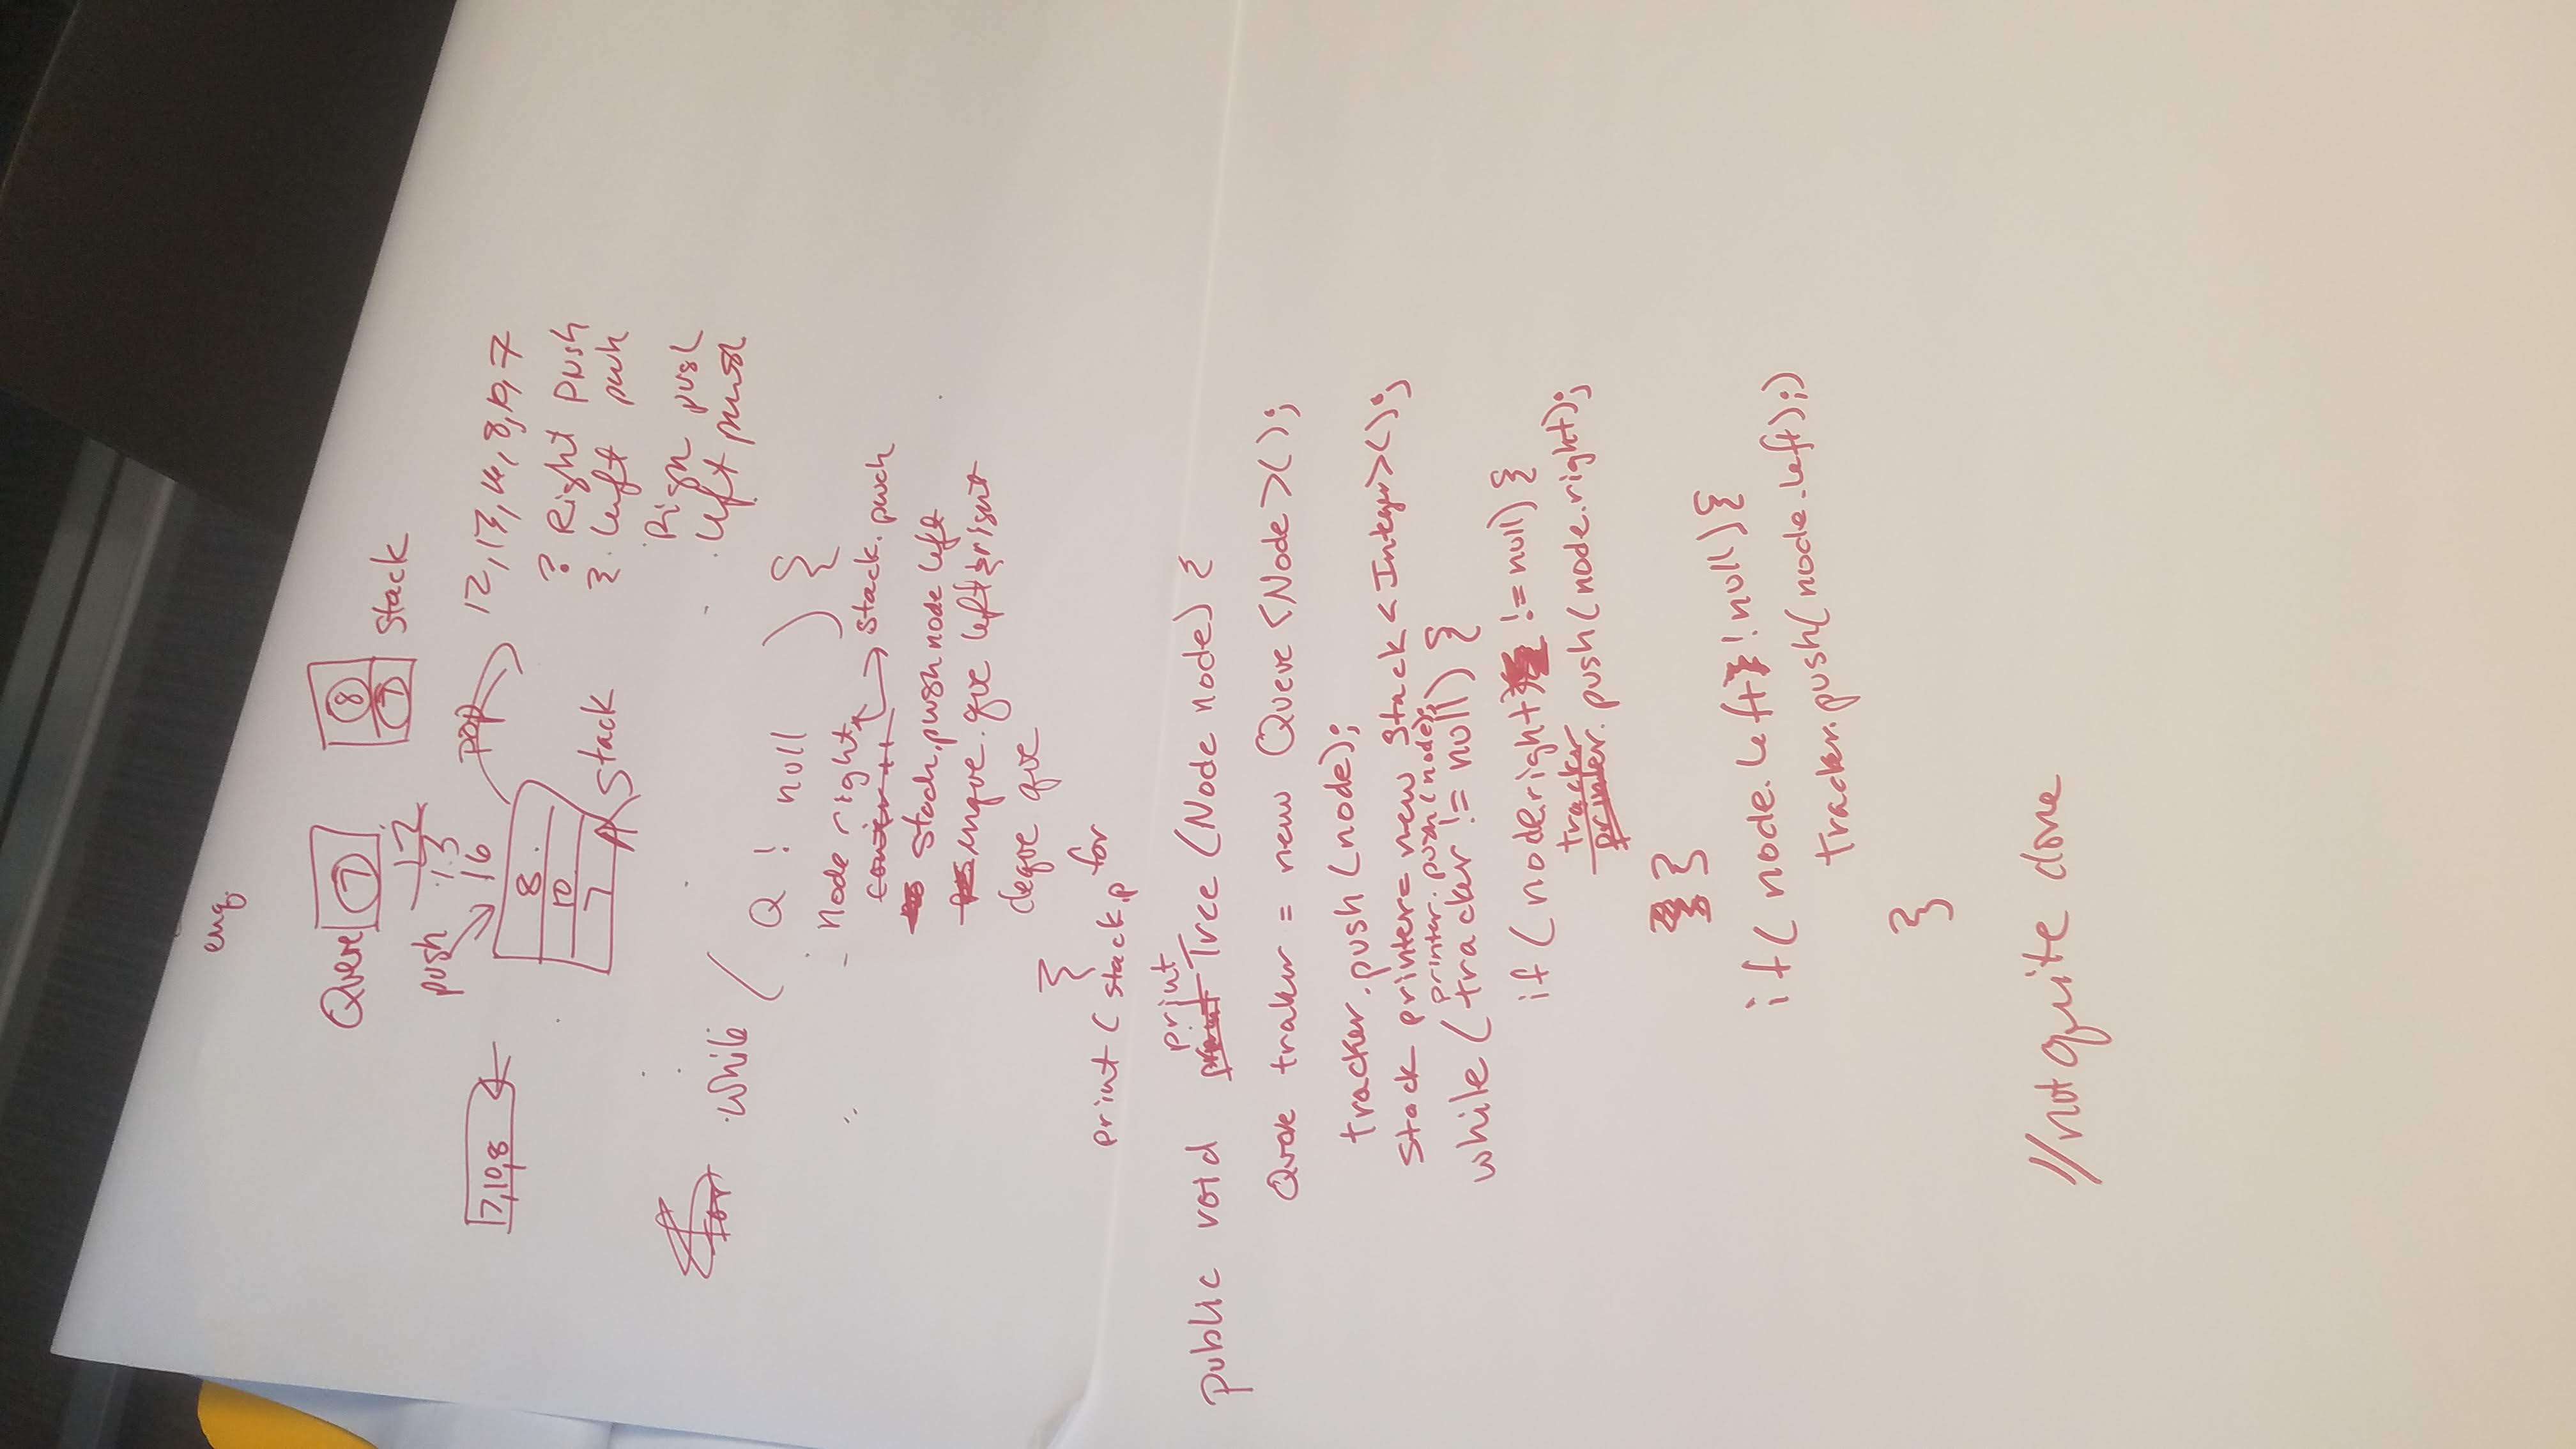 enq.
Queue 7
8
7 stack
12
push 13
16
pop 12, 13, 16, 8, 10, 7
7,10,8
8
10
7 Stack
? Right push
left push
Righ push
left push
for while ( Q ! null ) {
Node right stack.push
counter ++
stack.push node left
enque. que left & right
deque que
}
print ( stack.p for
public void print print Tree (Node node) {
Queue traker = new Queue <Node>();
tracker.push (node);
Stack printer = new Stack < Integer>();
printer.push(node);
while (tracker != null) {
if (node.right != null) {
tracker
printer. push (node.right);
}
if ( node.left ! null) {
tracker.push( node.left););
}
//not quite done